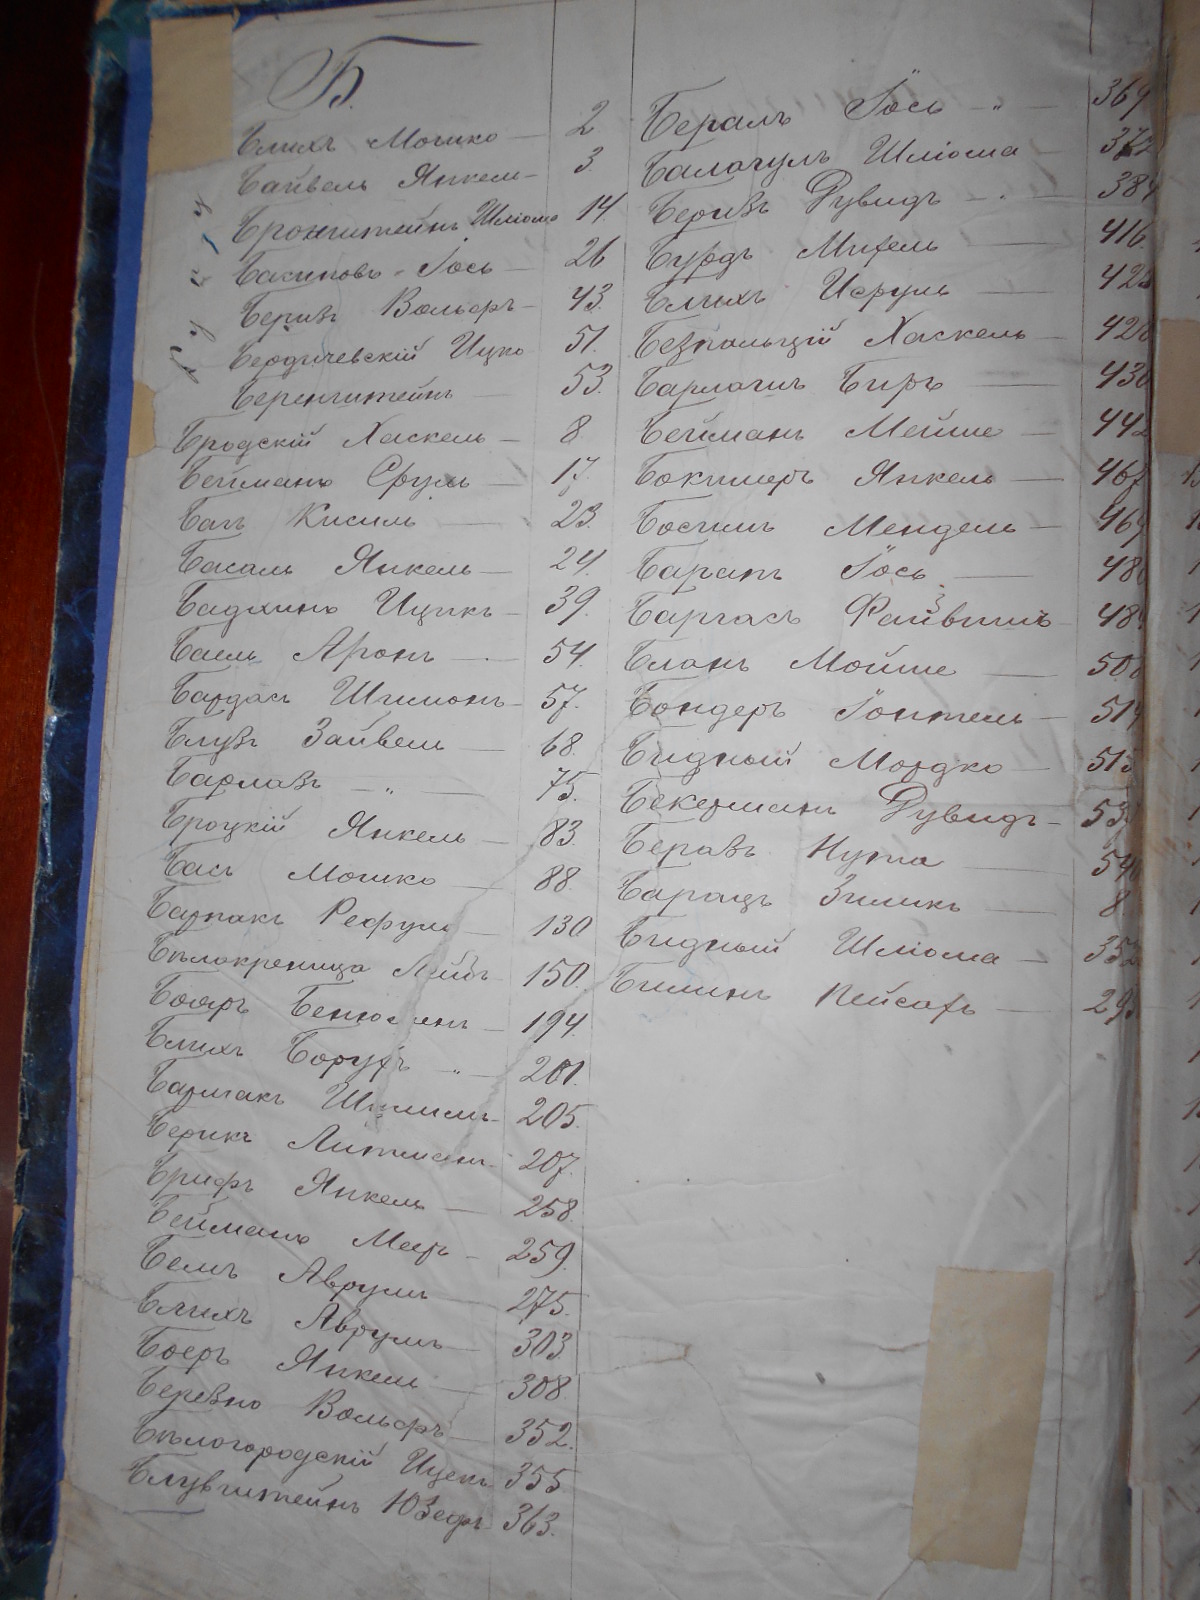 Б.
Блихъ Мошко — 2
Байвель Янкель — 3.
Бронштейнъ Шліома 14.
Іось — 26
Беривъ Вольфъ — 43.
Бердичевскій Ицко 51.
Беренштейнъ — 53.
Бродскій Хаскель — 8
Бейманъ Сруль — 17.
Бакъ Кисиль — 23.
Басаль Янкель — 24.
Бадхинъ Ицикъ — 39.
Баель Аронъ — 54.
Бардасъ Шлимонъ — 57.
Блувъ Зайвель — 68.
Барлавъ — „ — 75.
Броцкій Янкель — 83.
Басъ Мошко — 88.
Барпакъ Рефуль — 130
Бѣлокреница Лейбъ 150.
Боюръ — 194.
Блихъ Борухъ „ — 201.
Бармакъ 205.
Берикъ Литманъ 207.
Брифъ Янкель — 258.
Бейманъ Мееръ — 259.
Белъ Аврумъ — 275.
Блихъ Аврумъ — 303.
Боеръ Янкель — 308
Беревно Вольфъ — 352.
Бѣлогородскій Ицекъ 355
Блувштейнъ Юзефъ 363.
Бералъ Іось — „ — 369
Балагулъ Шліома — 372
Беривъ Дувидъ — . — 384
Бурдъ Михель — 416.
Блихъ Исруль — 42
Безпальцій Хаскель — 42
Барлагиъ Биръ — 430
Бейманъ Мейше — 442
Бокшеръ Янкель — 467
Босъ Мендель — 469
Баранъ Іось — 48
Баргасъ Файвишъ — 48
Бланъ Мойше — 50
Бондеръ Іонтель — 514
Бидный Мордко — 515
Бекерманъ Дувидъ — 53
Беравъ Нута — 54
Баращъ Зиликъ — 8.
Бидный Шліома — 35
Билинъ Пейсахъ — 29